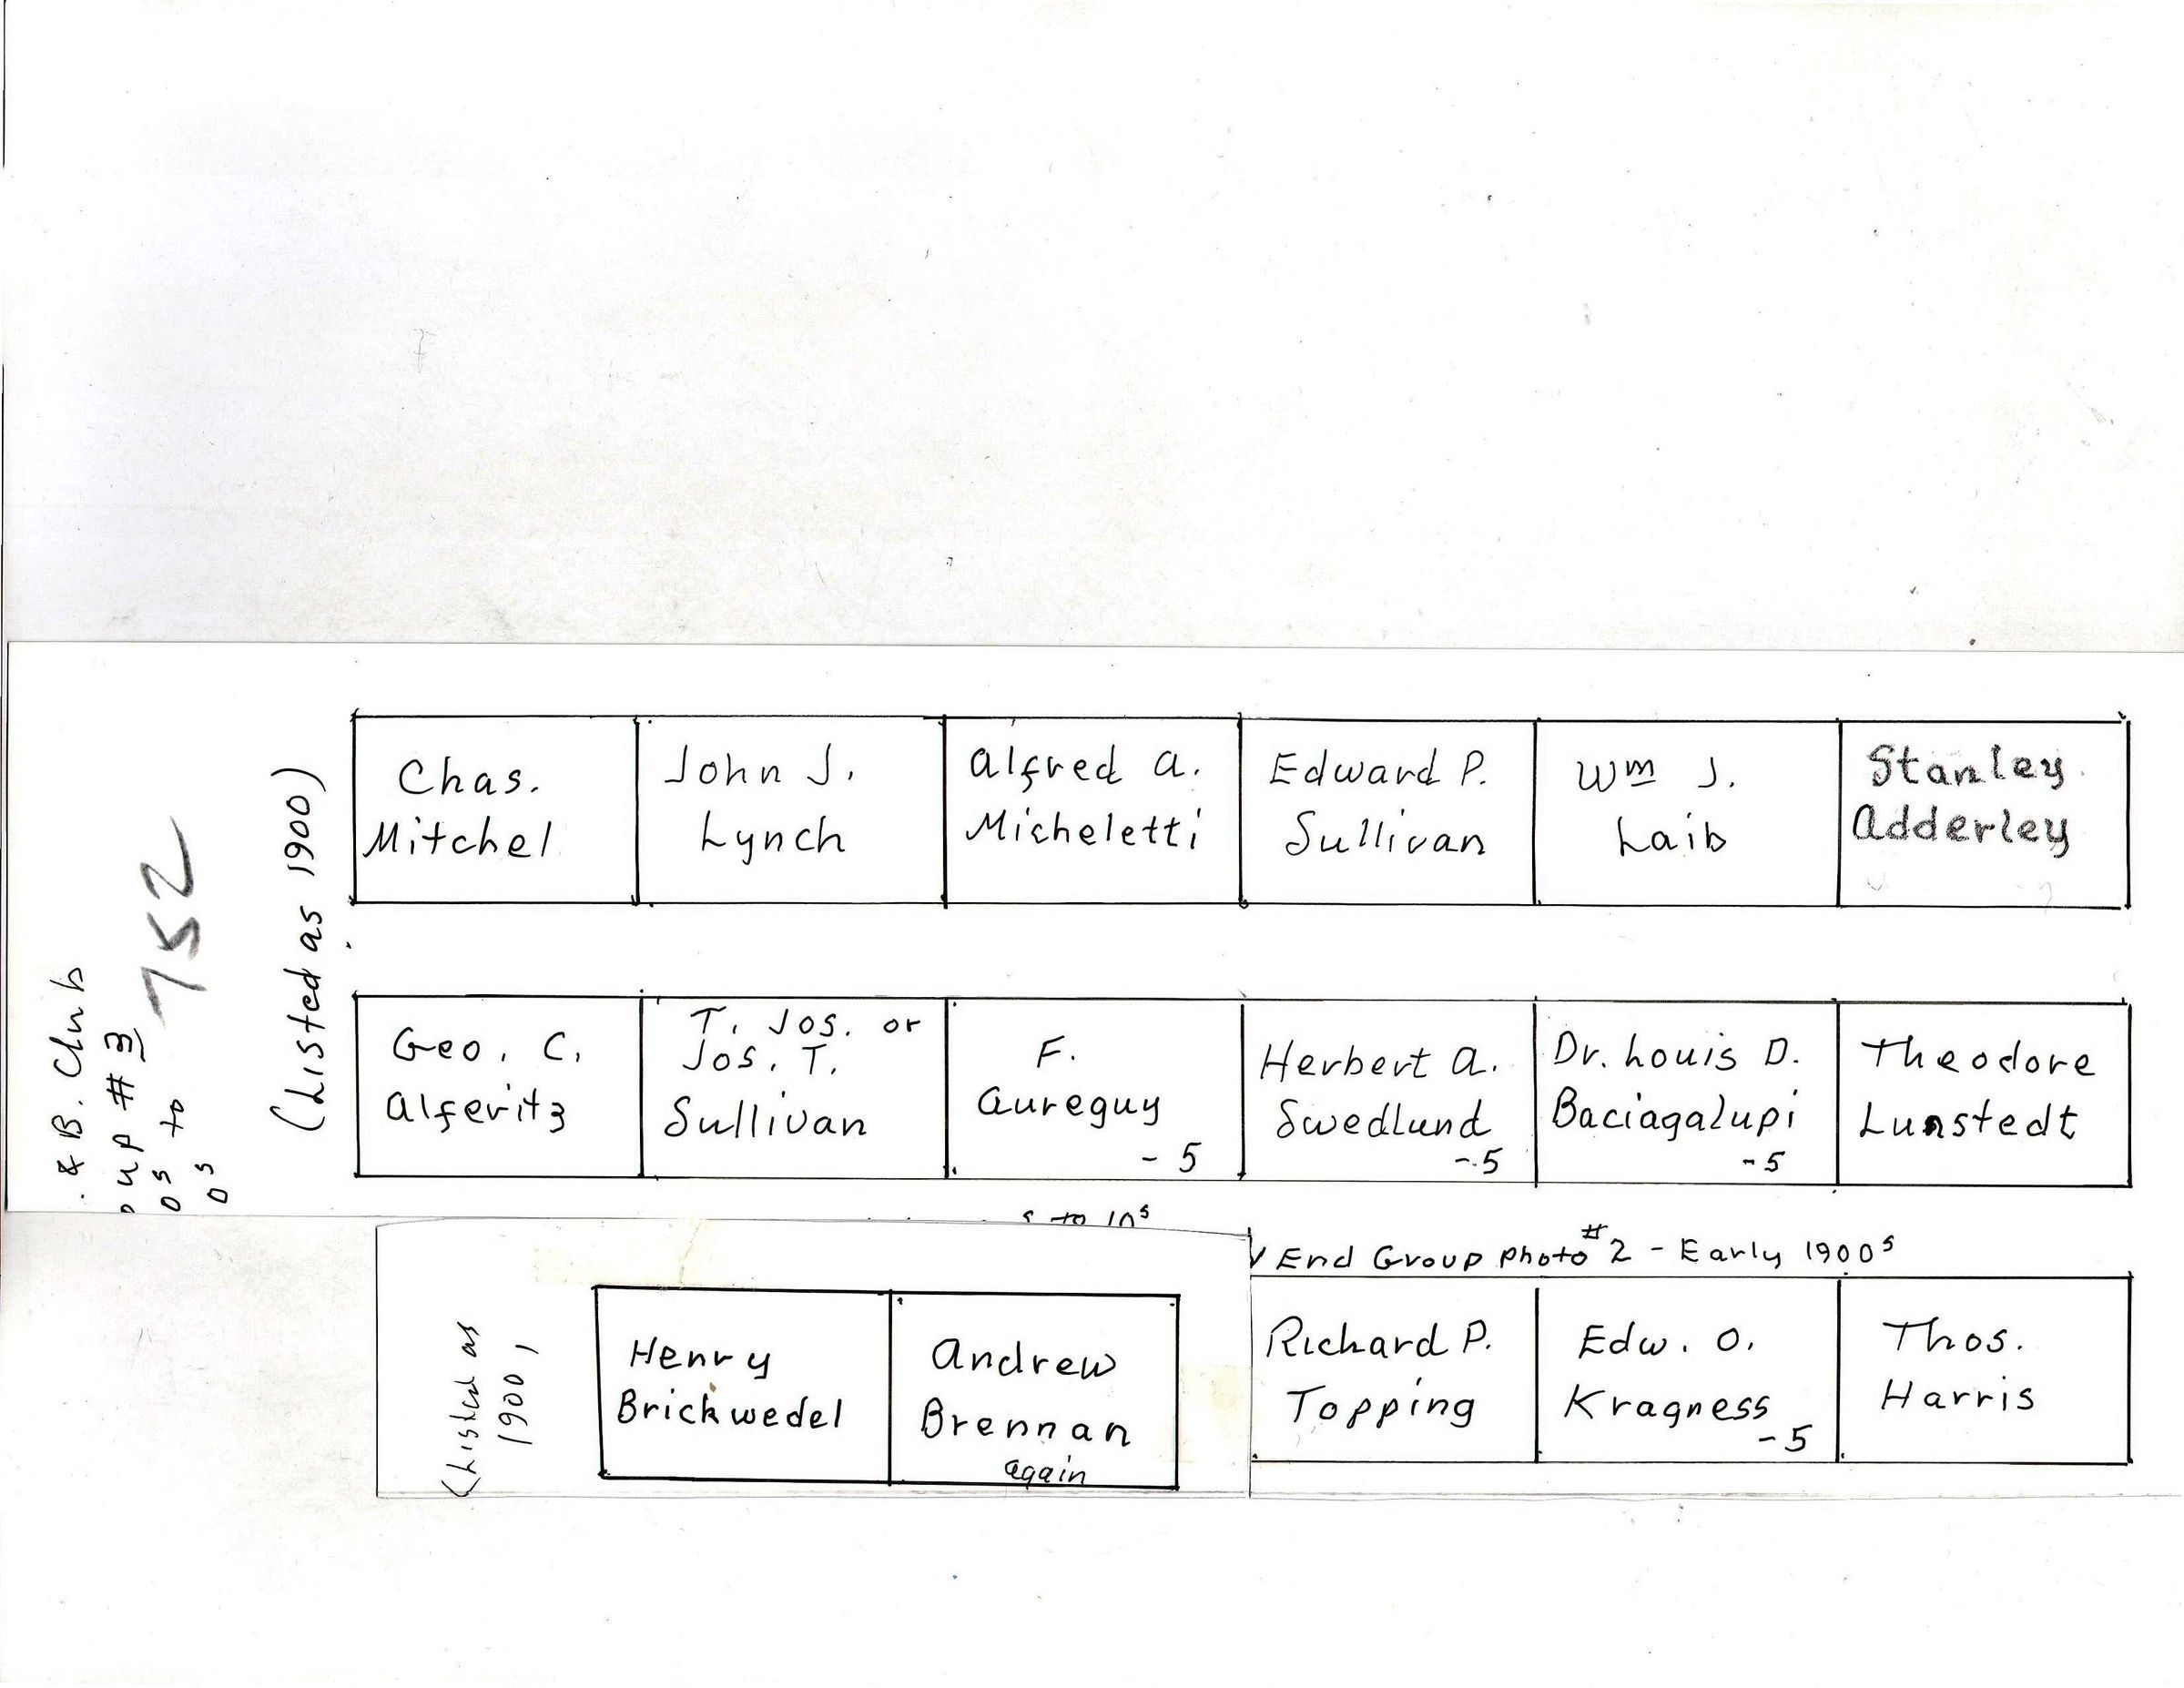 . & B. Club
oup # 3
0s to
0s
752
(Listed as 1900)
Chas.
Mitchel
John J.
Lynch
Alfred A.
Micheletti
Edward P.
Sullivan
Wm J.
Laib
Stanley
Adderley
Geo. C.
Alferitz
T. Jos. or
Jos. T.
Sullivan
F.
Aureguy
- 5
Herbert A.
Swedlund
- 5
Dr. Louis D.
Baciagalupi
- 5
Theodore
Lunstedt
s to 10s
End Group photo #2 - Early 1900s
(Listed as
1900)
Henry
Brickwedel
Andrew
Brennan
again
Richard P.
Topping
Edw. O.
Kragness
- 5
Thos.
Harris